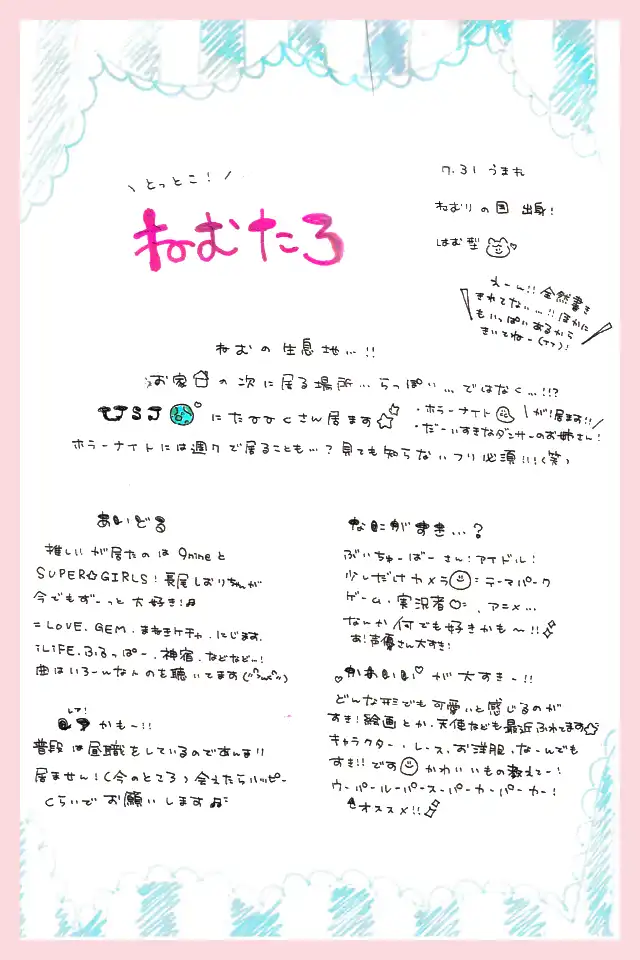 \ とっとこ! /
ねむたろ
7.31 うまれ
ねむりの国 出身!
はむ型
えーん!! 全然書き
きれてない...!! ほかに
もいっぱいあるから
きいてねー(TT)!
ねむの生息地...!!
お家の次に居る場所...らっぽい...ではなく...!!?
USJ にたっっくさん居ます
・ホラーナイト が居ます!!/
・だーいすきなダンサーのお姉さん!
ホラーナイトには週7で居ることも...? 見ても知らないフリ必須!!!(笑)
あいどる
推しが居たのは 9nineと
SUPER☆GIRLS! 長尾しおりちゃんが
今でもずーっと大好き!♫
=LOVE.GEM.まねきケチャ.にじます.
iLiFE.ふるっぱー.神宿.などなど...!
曲はいろーんなんのを聴いてます
レア!
かもー!!
普段は昼職をしているのであんまり
居ません!(今のところ)会えたらハッピー
くらいでお願いします♫
なにがすき...?
ぶいちゅーばーさん!アイドル!
少しだけカメラ テーマパーク
ゲーム、実況者 、アニメ...
なんか何でも好きかも〜!!
あ!声優さん大すき!
かわいい♡が大すきー!!
どんな形でも可愛いと感じるのが
すき!絵画とか、天使なども最近ふれてます
キャラクター、レース、お洋服、なーんでも
すき!!です かわいいもの教えてー!
ウーパールーパースーパーカーパーカー!
オススメ!!